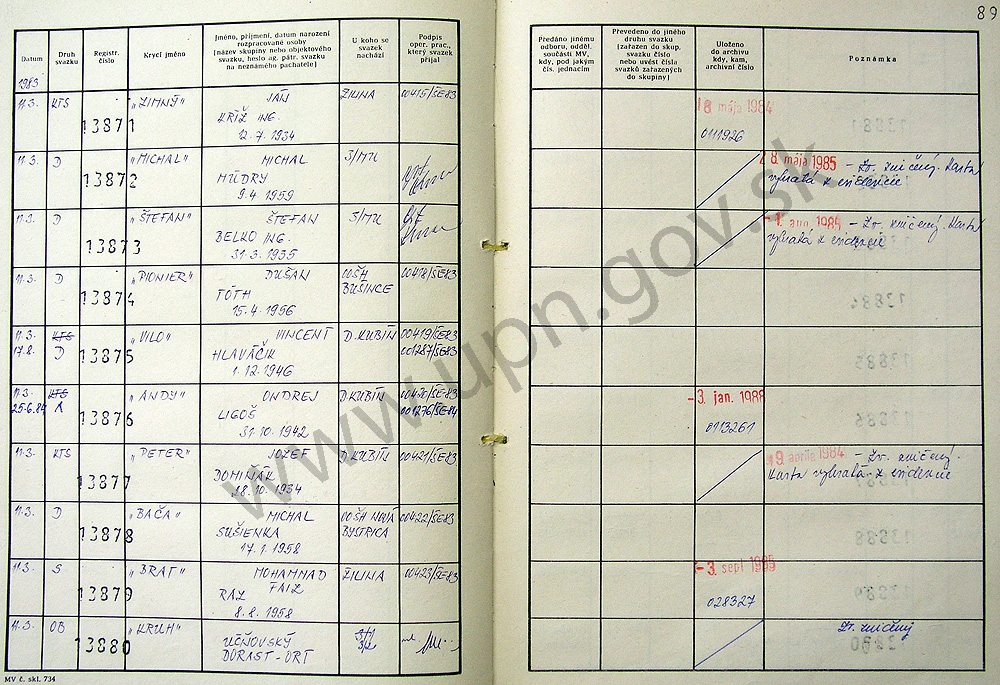 89
Datum
Druh svazku
Registr. číslo
Krycí jméno
Jméno, příjmení, datum narození
rozpracované osoby
(název skupiny nebo objektového
svazku, heslo ag. pátr. svazku
na neznámého pachatele)
U koho se
svazek
nachází
Podpis
oper. prac.,
který svazek
přijal
Předáno jinému
odboru, odděl.
součásti MV,
kdy, pod jakým
čís. jednacím
Převedeno do jiného
druhu svazku
(zařazen do skup.
svazku číslo
nebo uvést čísla
svazků zařazených
do skupiny)
Uloženo
do archivu
kdy, kam,
archivní číslo
Poznámka
1983
11.3. KTS 13871 „ZIMNÝ" JÁN ŽILINA 00415/ŠE83
KRÍŽ ING.
12.7.1934
18 mája 1984
0111926
11.3. D 13872 „MICHAL" MICHAL
MÚDRY
9.4.1959
8. mája 1985 – Zv. zničený. Karta
vybratá z evidencie
11.3. D 13873 „ŠTEFAN" ŠTEFAN
BELKO ING.
31.3.1935
– Zv. zničený Karta
vybratá z evidencie
11.3. D 13874 „PIONIER" DUŠAN OOŠH 00418/ŠE83
TÓTH BUŠINCE
15.4.1956
11.3. KTS 13875 „VILO" VINCENT D.KUBÍN 00419/ŠE83
17.8. D HLAVÁČIK 001287/ŠE83
1.12.1946
11.3. KTS 13876 „ANDY" ONDREJ D.KUBÍN 00420/ŠE83
25.6.84 A LIGOŠ 001276/ŠE84
31.10.1942
-3. jan. 1988
0113261
11.3. KTS 13877 „PETER" JOZEF D.KUBÍN 00421/ŠE83
DOMINIÁK
28.10.1934
9 apríla 1984 – Zv. zničený.
Karta vybratá z evidencie
11.3. D 13878 „BAČA" MICHAL OOŠH NOVÁ 00422/ŠE83
SUŠIENKA BYSTRICA
17.1.1958
11.3. S 13879 „BRAT" MOHAMMAD ŽILINA 00423/ŠE83
RAZ FAIZ
8.8.1958
-3. sept
028327
11.3. OB 13880 „KRUH"
UČŇOVSKÝ
DORAST-ORT
Zv. zničený
MV č. skl. 734
www.upn.gov.sk